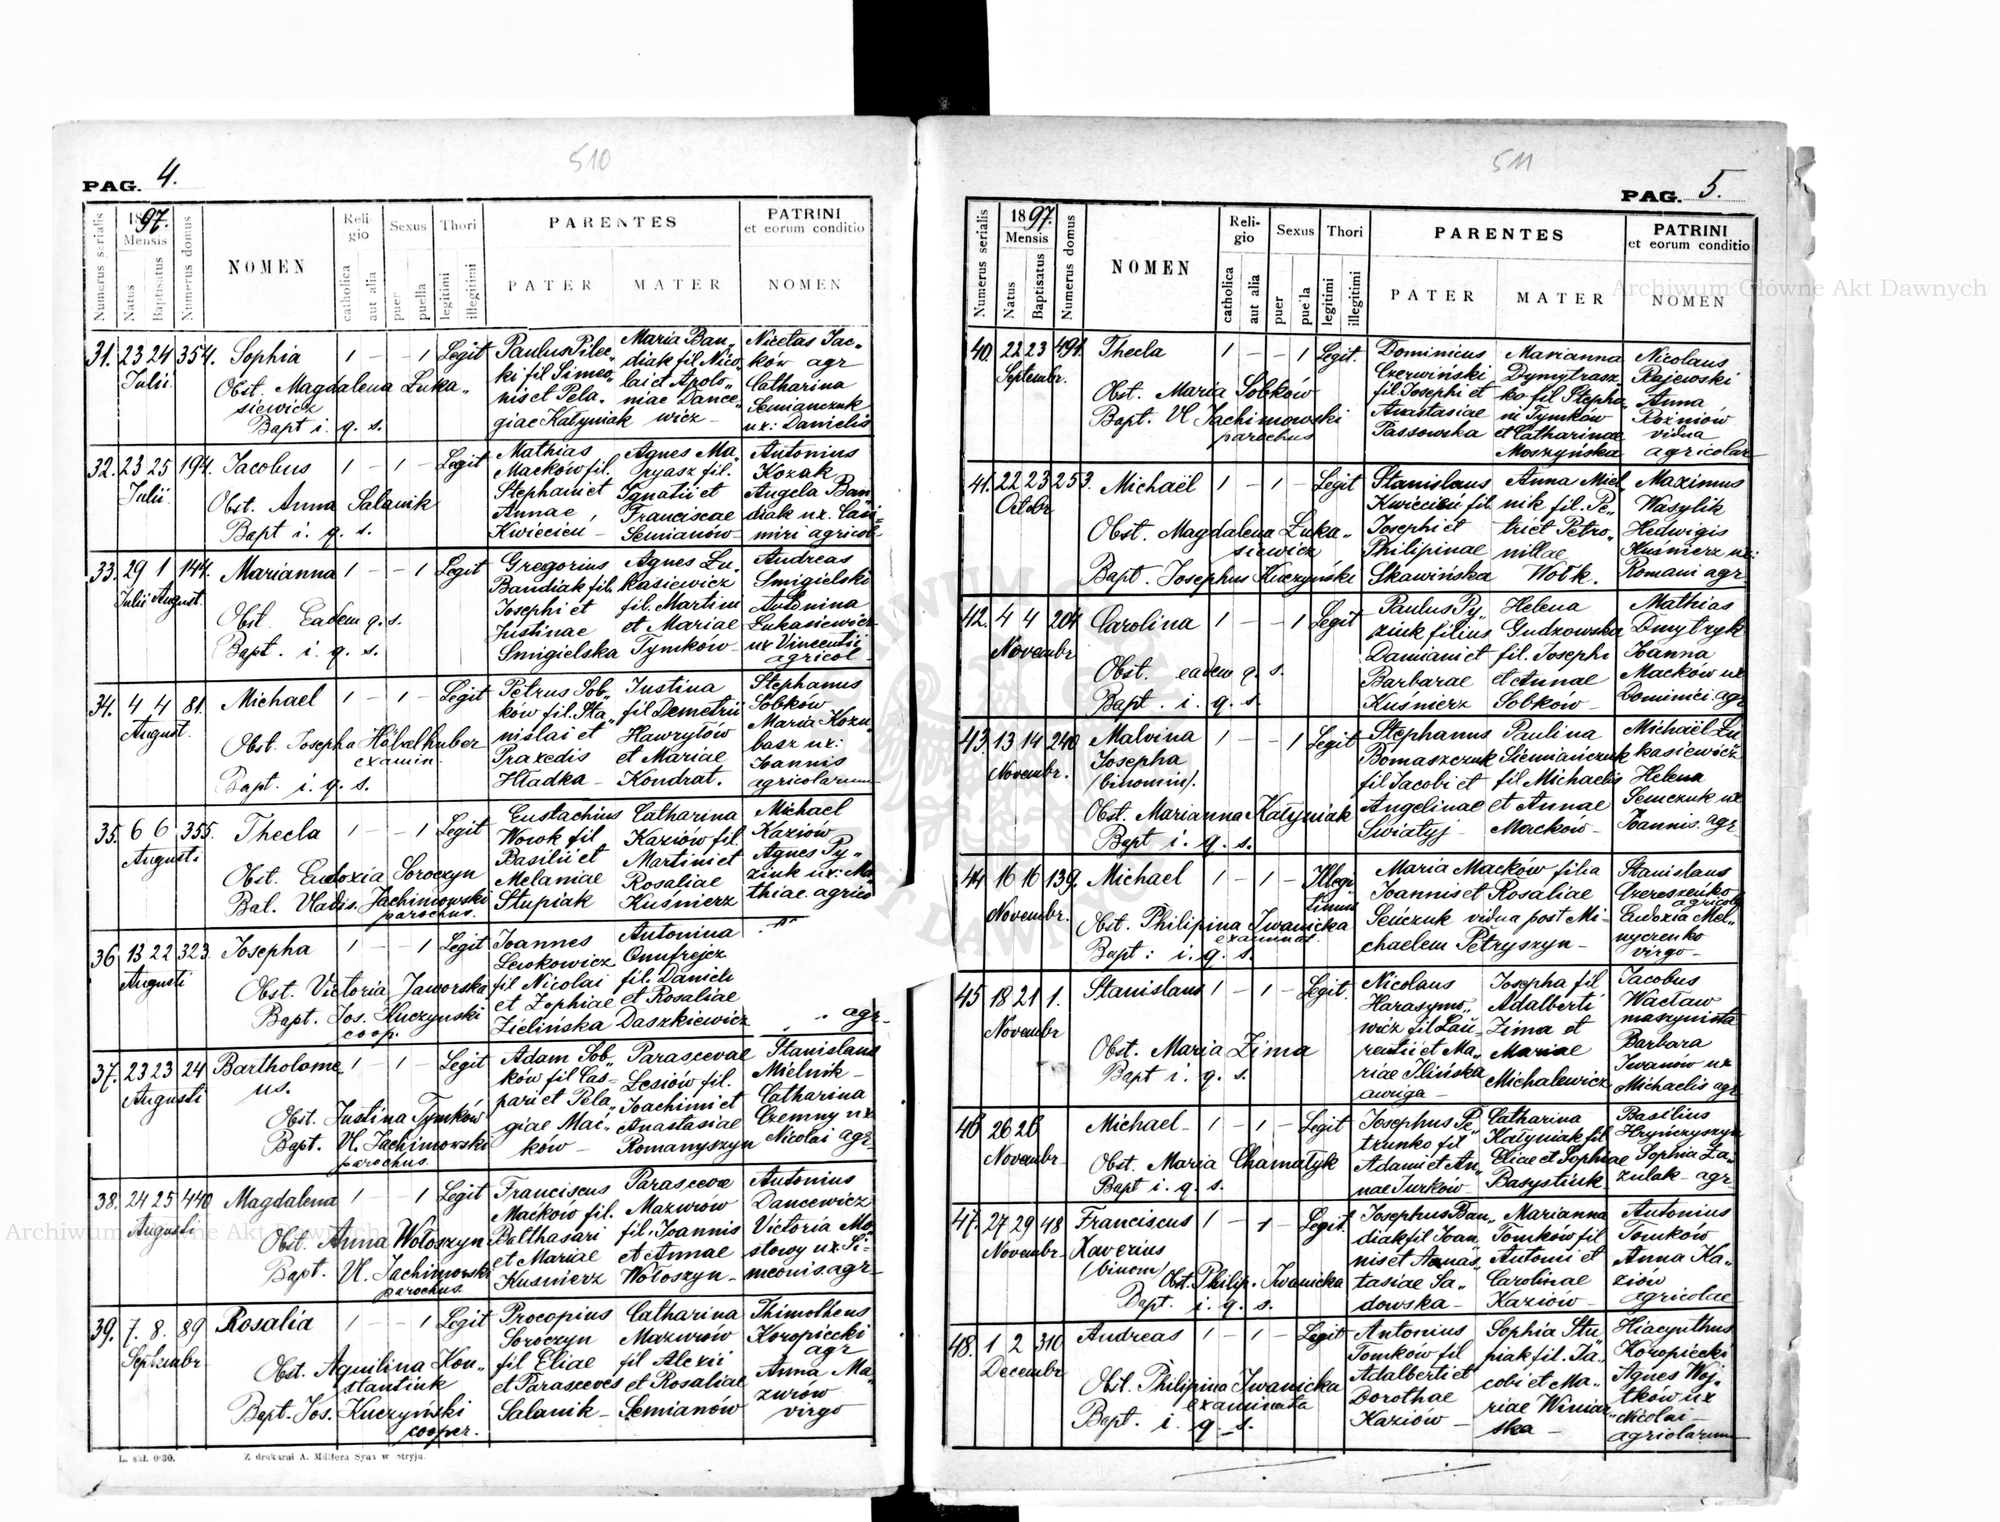 510
PAG. 4.
Numerus serialis
1897.
Mensis
Natus
Baptisatus
Numerus domus
NOMEN
Reli-
gio
catholica
aut alia
Sexus
puer
puella
Thori
legitimi
illegitimi
PARENTES
PATER
MATER
PATRINI
et eorum conditio
NOMEN
31. 23 24 354. Sophia 1 – – 1 Legit
Julii
Obst. Magdalena Łuka„
siewicz
Bapt i. q. s.
Paulus Pilec„
ki fil Simeo„
nis et Pela„
giae Katyniak
Maria Ban„
diak fil Nico„
lai et Apolo„
niae Dance„
wicz –
Nicetas Jac„
ków agr
Catharina
Semianczuk
ux: Danielis
32. 23 25 194. Jacobus 1 – 1 – Legit
Julii
Obst. Anna Salanik
Bapt i. q. s.
Mathias
Maćków fil.
Stephani et
Annae
Kwiecień –
Agnes Ma„
ryasz fil.
Ignatii et
Franciscae
Semianów –
Antonius
Kozak
Angela Ban„
diak ux. Casi„
miri agricol.
33. 29 1 144. Marianna 1 – – 1 Legit
Julii August.
Obst. Eadem q. s.
Bapt. i. q. s.
Gregorius
Bandiak fil.
Josephi et
Justinae
Smigielska
Agnes Łu„
kasiewicz
fil. Martini
et Mariae
Tymków –
Andreas
Smigielski
Antonina
Łukasiewicz
ux Vincentii
agricol –
34. 4 4 81. Michael 1 – 1 – Legit
August.
Obst. Josepha Höbelhuber
examin.
Bapt. i. q. s.
Petrus Sob„
ków fil. Sta„
nislai et
Praxedis
Hładka –
Justina
fil Demetrii
Hawryłów
et Mariae
Kondrat.
Stephanus
Sobków
Maria Kozu„
basz ux:
Joannis
agricolarum
35. 6 6 355. Thecla 1 – – 1 Legit
Augusti
Obst. Eudoxia Soroczyn
Bat. Vladis. Jachimowski
parochus.
Eustachius
Worok fil
Basilii et
Melaniae
Stupiak
Catharina
Kaziów fil.
Martini et
Rosaliae
Kuśnierz
Michael
Kaziow
Agnes Py„
ziuk ux: Ma
thiae. agrico
36 13 22 323. Josepha 1 – – 1 Legit
Augusti
Obst. Victoria Jaworska
Bapt. Jos. Kuczynski
coop.
Joannes
Lewkowicz
fil Nicolai
et Zophiae
Zielińska
Antonina
Onufrejcz
fil. Danieli
et Rosaliae
Daszkiewicz
agr –
37. 23 23 24 Bartholome„ 1 – 1 – Legit
Augusti us.
Obst. Justina Tymków
Bapt. Vl. Jachimowski
parochus.
Adam Sob„
ków fil Cas–
pari et Pela„
giae Mac„
ków –
Parascevae
Lesiów fil.
Joachimi et
Anastasiae
Romanyszyn
Stanislaus
Mielnik –
Catharina
Czemny ux
Nicolai agr –
38. 24 25 440 Magdalena 1 – – 1 Legit
Augusti
Obst. Anna Wołoszyn
Bapt. Vl. Jachimowski
parochus.
Franciscus
Maćków fil.
Balthasari
et Mariae
Kusnierz
Parascevae
Mazurów
fil. Joannis
et Annae
Wołoszyn –
Antonius
Dancewicz
Victoria Mo„
stowy ux. Si–
meonis. agr –
39. 7. 8. 89 Rosalia 1 – – 1 Legit
Septembr
Obst. Aquilina Kon„
stantiuk
Bapt. Jos. Kuczyński
cooper.
Procopius
Soroczyn
fil Eliae
et Parasceves
Salanik –
Catharina
Mazurów
fil Alexii
et Rosaliae
Semianów
Thimotheus
Koropiecki
agr
Anna Ma„
zurów
virgo
L. skł. 0·30.
Z drukarni A. Müllera Syna w Stryju.
511
PAG. 5.
Numerus serialis
1897.
Mensis
Natus
Baptisatus
Numerus domus
NOMEN
Reli-
gio
catholica
aut alia
Sexus
puer
puella
Thori
legitimi
illegitimi
PARENTES
PATER
MATER
PATRINI
et eorum conditio
NOMEN
40. 22 23 491. Thecla 1 – – 1 Legit.
Septembr.
Obst. Maria Sobków
Bapt. Vl Jachimowski
parochus
Dominicus
Czerwiński
fil. Josephi et
Anastasiae
Passowska
Marianna
Dymytrasz„
ko fil Stepha„
ni Tymków
et Catharinae
Moszyńska
Nicolaus
Rajewski
Anna
Rożniów
vidua
agricolar
41. 22 23 253. Michaël 1 – 1 – Legit
Octobr
Obst. Magdalena Łuka„
siewicz
Bapt. Josephus Kuczyński
Stanislaus
Kwiecień fil.
Josephi et
Philipinae
Skawińska
Anna Miel„
nik fil. Pe„
tri et Petro„
nillae
Wołk.
Maximus
Wasylik
Hedwigis
Kuśnierz ux:
Romani agr
42. 4 4 204 Carolina 1 – – 1 Legit
Novembr
Obst. eadem q. s.
Bapt. i. q. s.
Paulus Py„
ziuk filius
Damiani et
Barbarae
Kusnierz
Helena
Gudzowska
fil. Josephi
et Annae
Sobków –
Mathias
Dmytryk
Joanna
Maćków ux
Dominici agr
43. 13 14 240 Malvina 1 – – 1 Legit
Novembr. Josepha
(binomin).
Obst. Marianna Katyniak
Bapt i. q. s.
Stephanus
Bomaszczuk
fil Jacobi et
Angelinae
Swiatyj –
Paulina
Siemiańczuk
fil Michaelis
et Annae
Maćków –
Michaël Łu
kasiewicz
Helena
Semczuk ux
Joannis. agr
44 16 16 139. Michael 1 – 1 – Illegi
timus
Novembr.
Obst. Philipina Iwanicka
examinat.
Bapt: i. q. s.
Maria Maćków filia
Joannis et Rosaliae
Senczuk vidua post Mi–
chaelem Petryszyn –
Stanislaus
Czereszenko
agricola
Eudoxia Mel„
nyczenko
virgo –
45 18 21 1. Stanislaus 1 – 1 – Legit.
Novembr
Obst. Maria Zima
Bapt i. q. s.
Nicolaus
Harasymo„
wicz fil Lau–
rentii et Ma„
riae Ilińska
auriga –
Josepha fil
Adalberti
Zima et
Mariae
Michalewicz
Jacobus
Wacław
maszynista
Barbara
Iwanów ux
Michaelis agr
46 26 26 Michael – 1 – 1 – Legit
Novembr
Obst. Maria Chamatyk
Bapt i. q. s.
Josephus Pe„
trunko fil
Adami et An„
nae Jurków –
Catharina
Katyniak fil
Eliae et Sophiae
Basystiuk
Basilius
Hryńczyszyn
Sophia Za„
zulak – agr
47. 27 29 48 Franciscus 1 – 1 – Legit.
Novembr Xaverius
(binom)
Obst. Philip. Iwanicka
Bapt. i. q. s.
Josephus Ban„
diak fil Joan„
nis et Anas„
tasiae Sa„
dowska –
Marianna
Tomków fil
Antonii et
Carolinae
Kaziów –
Antonius
Tomków
Anna Ka„
ziów
agricolae
48. 1 2 310 Andreas 1 – 1 – Legit
Decembr
Obst. Philipina Iwanicka
examinata
Bapt. i. q. s.
Antonius
Tomków fil
Adalberti et
Dorothae
Kaziów –
Sophia Stu„
piak fil. Ja„
cobi et Ma„
riae Winiar„
ska –
Hiacynthus
Koropiecki
Agnes Woj„
tków ux
Nicolai –
agricolarum
Archiwum Główne Akt Dawnych
Archiwum Główne Akt Dawnych